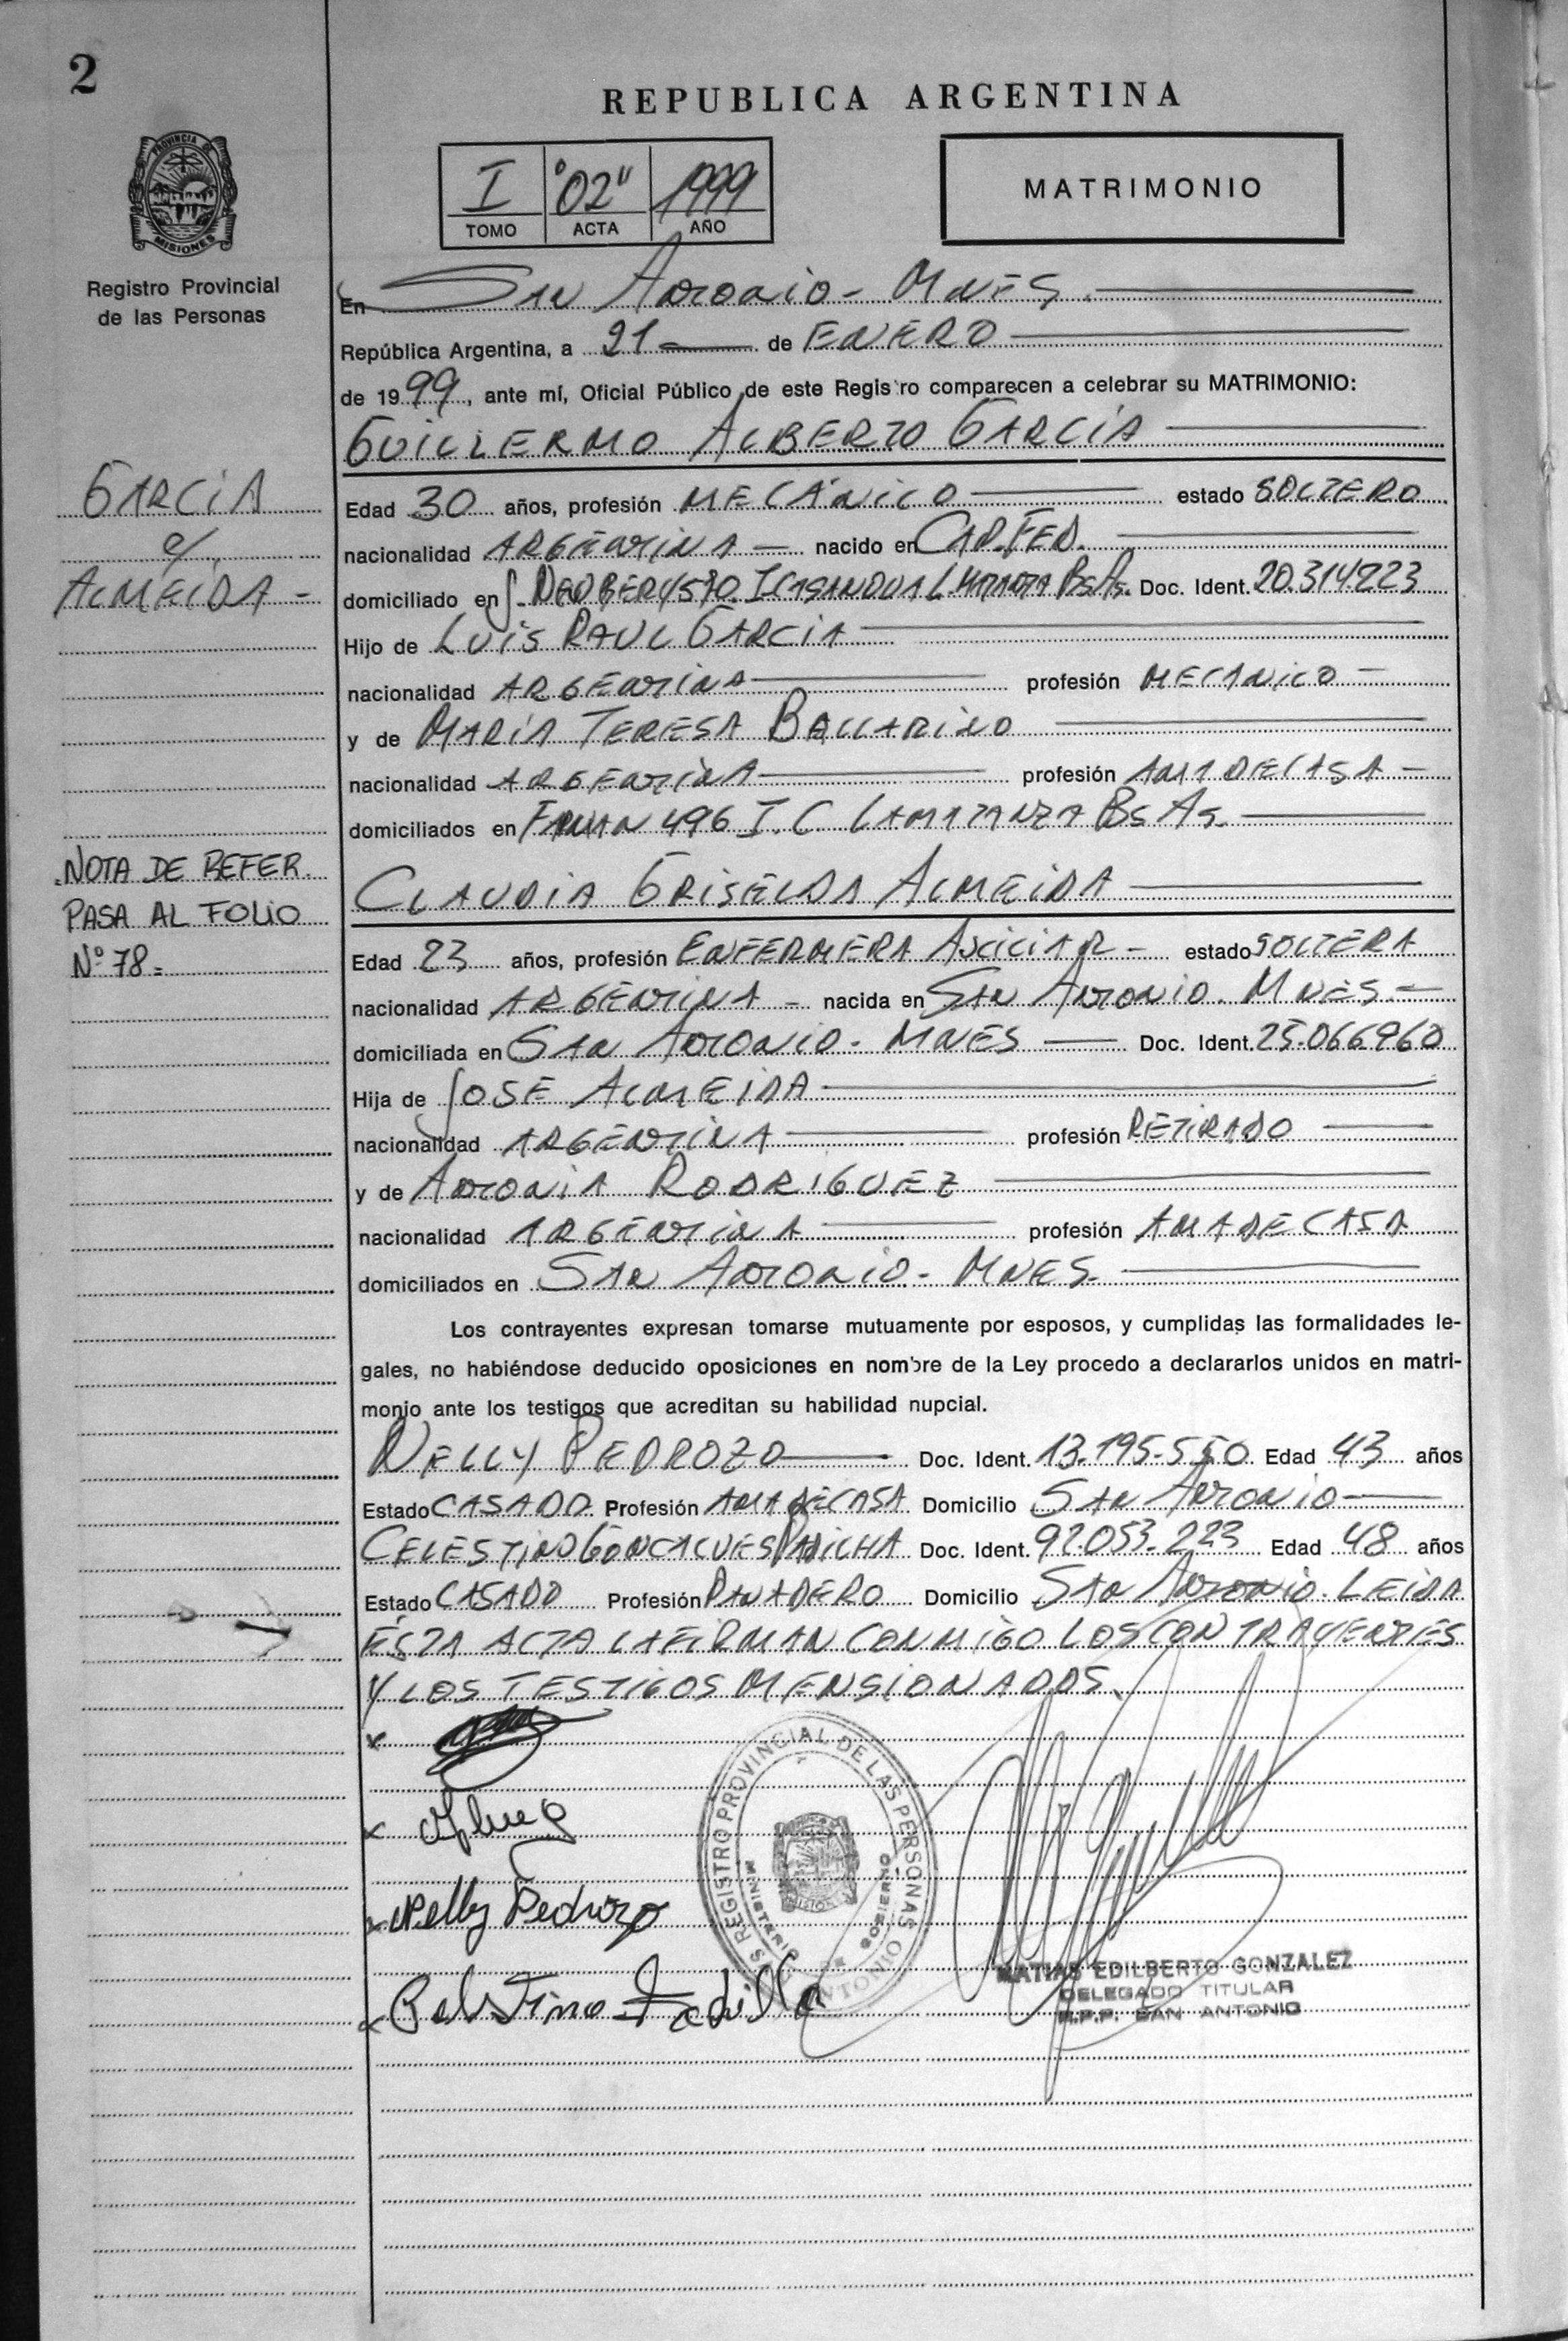 2
REPUBLICA ARGENTINA
PROVINCIA DE
MISIONES
I "02" 1999
TOMO ACTA AÑO
MATRIMONIO
Registro Provincial
de las Personas
En San Antonio - Mnes.
República Argentina, a 21 de ENERO
de 1999, ante mí, Oficial Público de este Registro comparecen a celebrar su MATRIMONIO:
GUILLERMO ALBERTO GARCÍA
GARCIA
c/
ALMEIDA -
Edad 30 años, profesión MECÁNICO estado SOLTERO
nacionalidad ARGENTINA - nacido en CAP. FED.
domiciliado en J. NEWBERY 570 I CASANOVA L. MATANZA Bs As. Doc. Ident. 20.314.223
Hijo de LUIS RAUL GARCIA
nacionalidad ARGENTINA profesión MECANICO -
y de MARÍA TERESA BALLARINO
nacionalidad ARGENTINA profesión AMA DE CASA -
domiciliados en 496 I. C. LA MATANZA Bs As.
NOTA DE REFER.
PASA AL FOLIO
Nº 78 =
CLAUDIA GRISELDA ALMEIDA
Edad 23 años, profesión ENFERMERA AUXILIAR - estado SOLTERA
nacionalidad ARGENTINA - nacida en SAN ANTONIO. MNES. -
domiciliada en SAN ANTONIO - MNES Doc. Ident. 25.066960
Hija de JOSE ALMEIDA
nacionalidad ARGENTINA profesión RETIRADO
y de ANTONIA RODRIGUEZ
nacionalidad ARGENTINA profesión AMA DE CASA
domiciliados en SAN ANTONIO - MNES.
Los contrayentes expresan tomarse mutuamente por esposos, y cumplidas las formalidades le-
gales, no habiéndose deducido oposiciones en nombre de la Ley procedo a declararlos unidos en matri-
monio ante los testigos que acreditan su habilidad nupcial.
NELLY PEDROZO Doc. Ident. 13.195.550 Edad 43 años
Estado CASADO Profesión AMA DE CASA Domicilio SAN ANTONIO
CELESTINO GONCALVES PADILHA Doc. Ident. 92.053.223 Edad 48 años
Estado CASADO Profesión PANADERO Domicilio SAN ANTONIO. LEIDA
ESTA ACTA LA FIRMAN CONMIGO LOS CONTRAYENTES
Y LOS TESTIGOS MENSIONADOS.
REGISTRO PROVINCIAL DE LAS PERSONAS
MINISTERIO GOBIERNO
S ANTONIO
Nelly Pedrozo
MATIAS EDILBERTO GONZALEZ
DELEGADO TITULAR
R.P.P. SAN ANTONIO